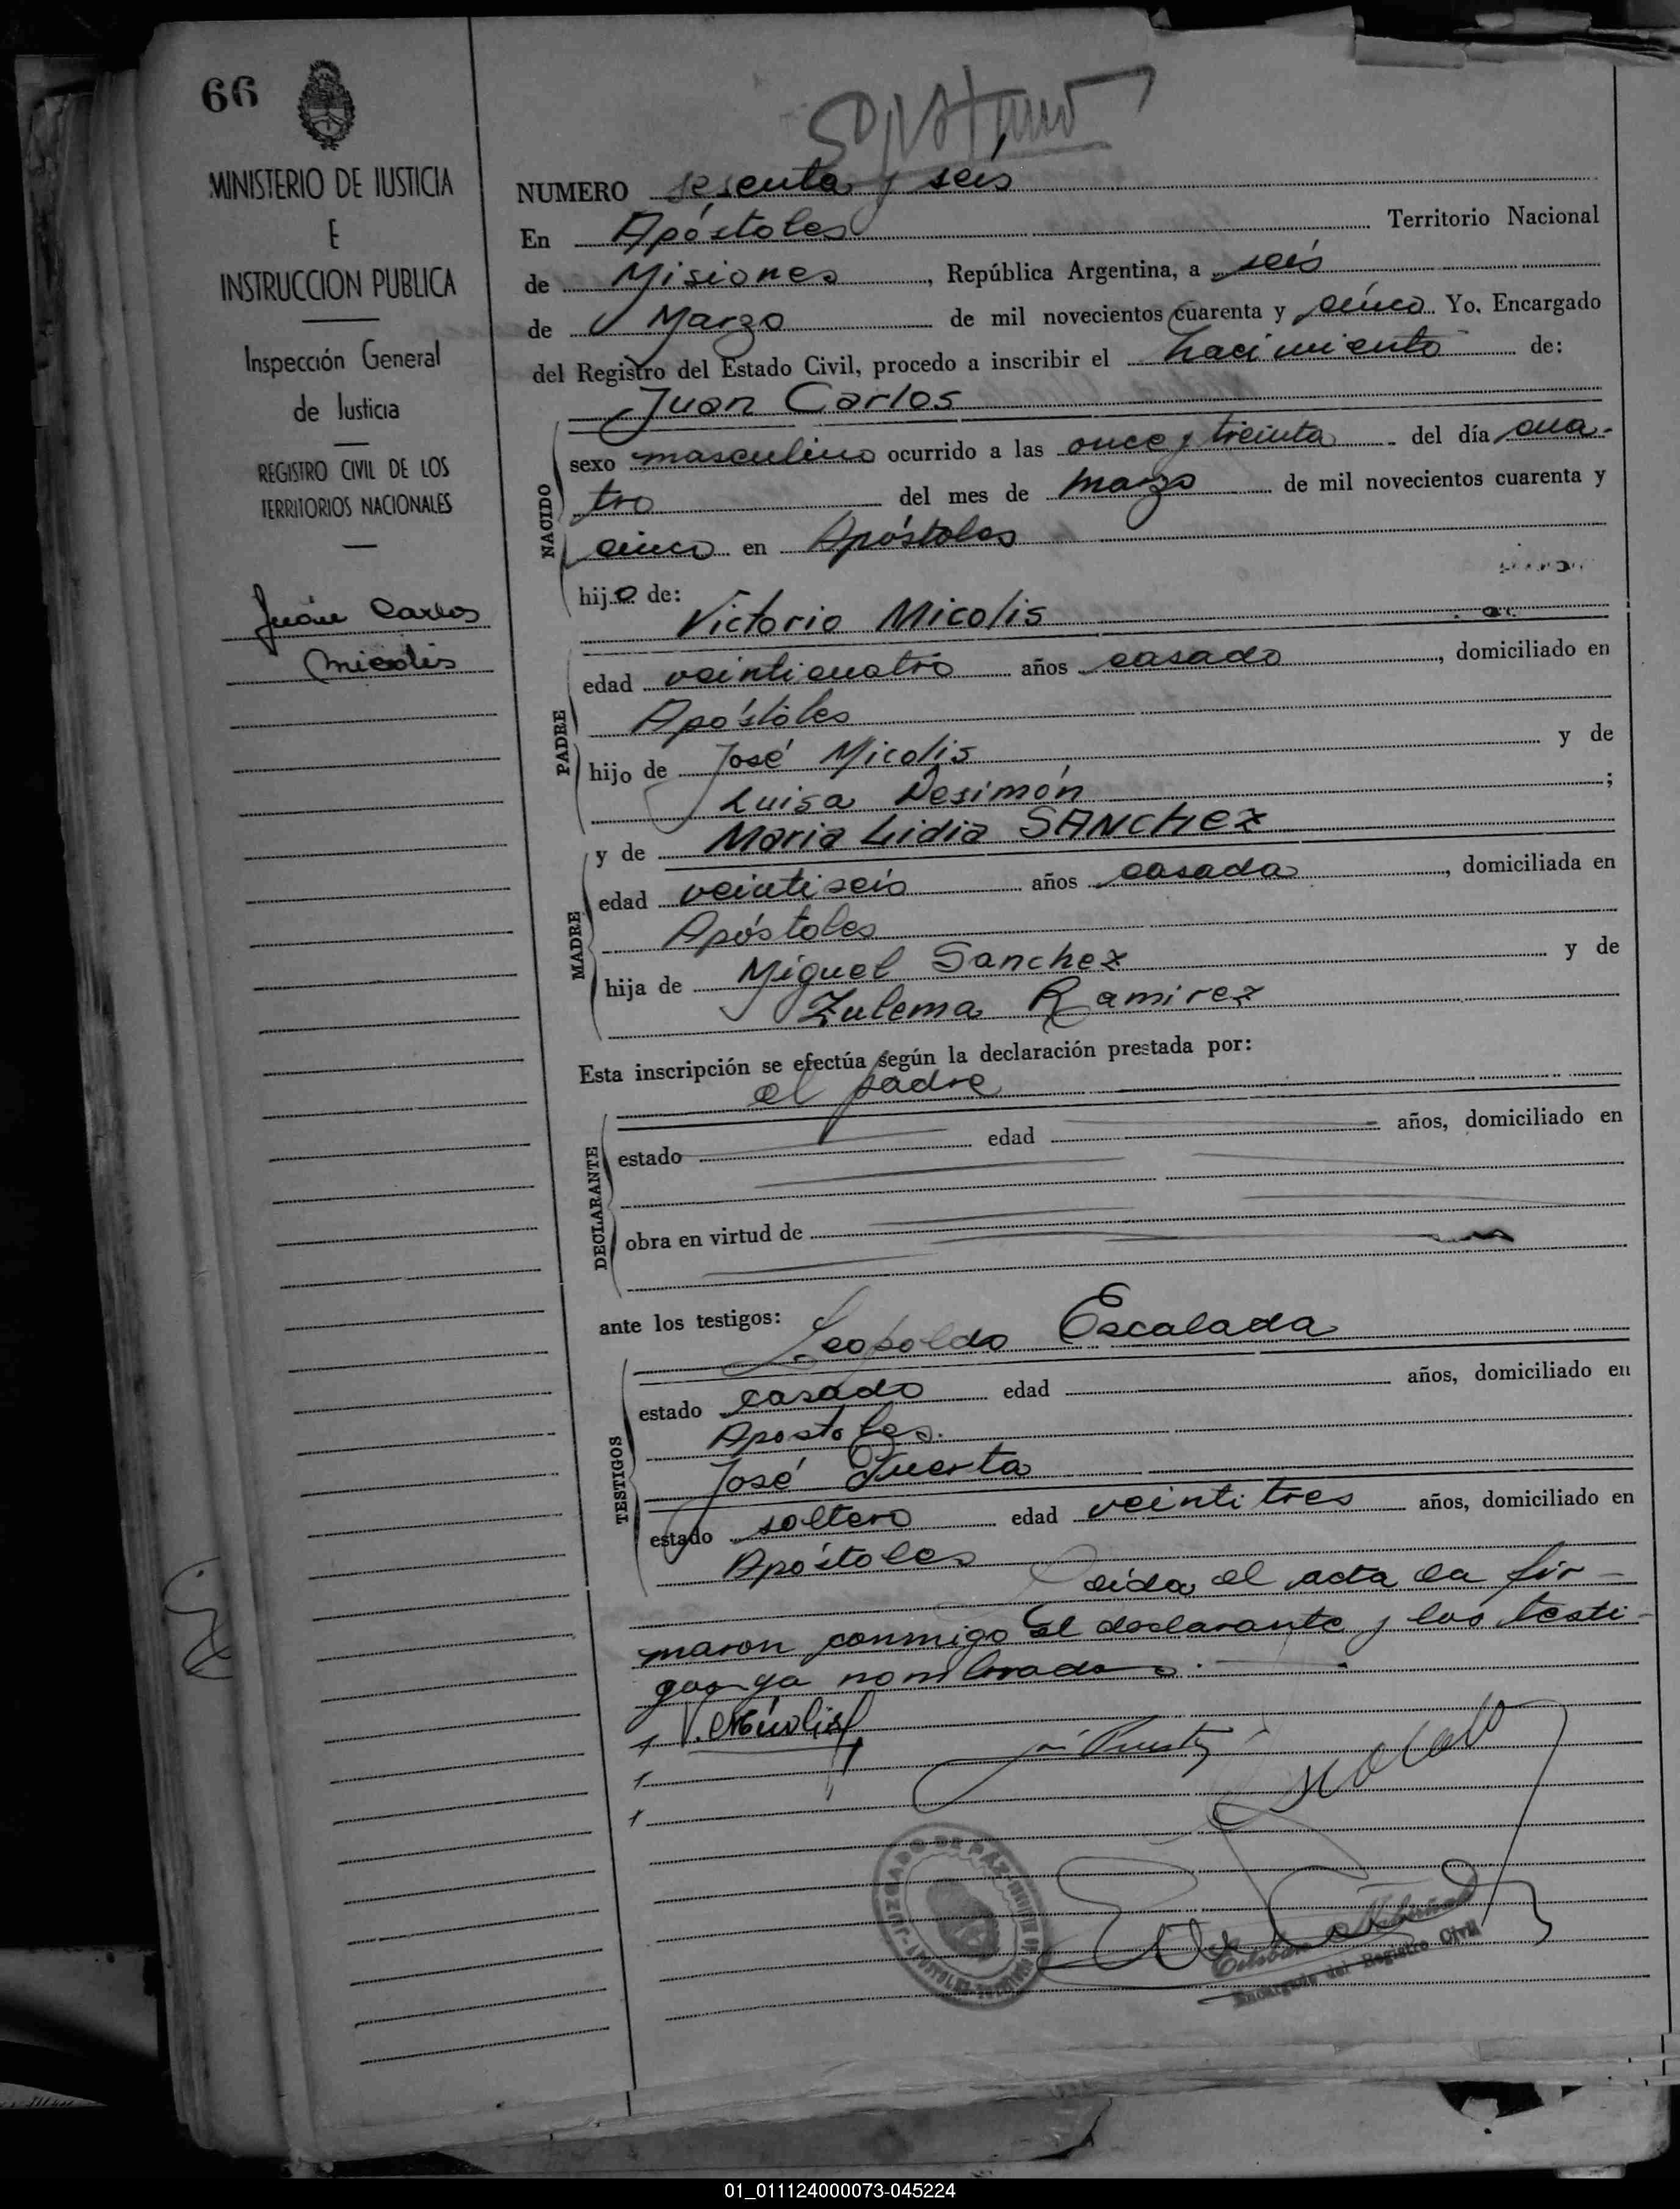 66
MINISTERIO DE JUSTICIA
E
INSTRUCCION PUBLICA
Inspección General
de Justicia
REGISTRO CIVIL DE LOS
TERRITORIOS NACIONALES
Juan Carlos
Micolis
NUMERO sesenta y seis
En Apóstoles Territorio Nacional
de Misiones, República Argentina, a seis
de Marzo de mil novecientos cuarenta y cinco Yo, Encargado
del Registro del Estado Civil, procedo a inscribir el nacimiento de:
Juan Carlos
NACIDO
sexo masculino ocurrido a las once y treinta del día cua-
tro del mes de marzo de mil novecientos cuarenta y
cinco en Apóstoles
hijo de:
Victorio Micolis
PADRE
edad veinticuatro años casado, domiciliado en
Apóstoles
hijo de José Micolis y de
Luisa Desimón;
y de Maria Lidia SANCHEZ
MADRE
edad veintiseis años casada, domiciliada en
Apóstoles
hija de Miguel Sanchez y de
Zulema Ramirez
Esta inscripción se efectúa según la declaración prestada por:
el padre
DECLARANTE
estado edad años, domiciliado en
obra en virtud de
ante los testigos:
Leopoldo Escalada
TESTIGOS
estado casado edad años, domiciliado en
Apostoles.
José Puerta
estado soltero edad veintitres años, domiciliado en
Apóstoles Leída el acta la fir-
maron conmigo el declarante y los testi-
gos ya nombrados.
V. Micolis
JUZGADO DE PAZ
Encargado del Registro Civil
01_011124000073-045224